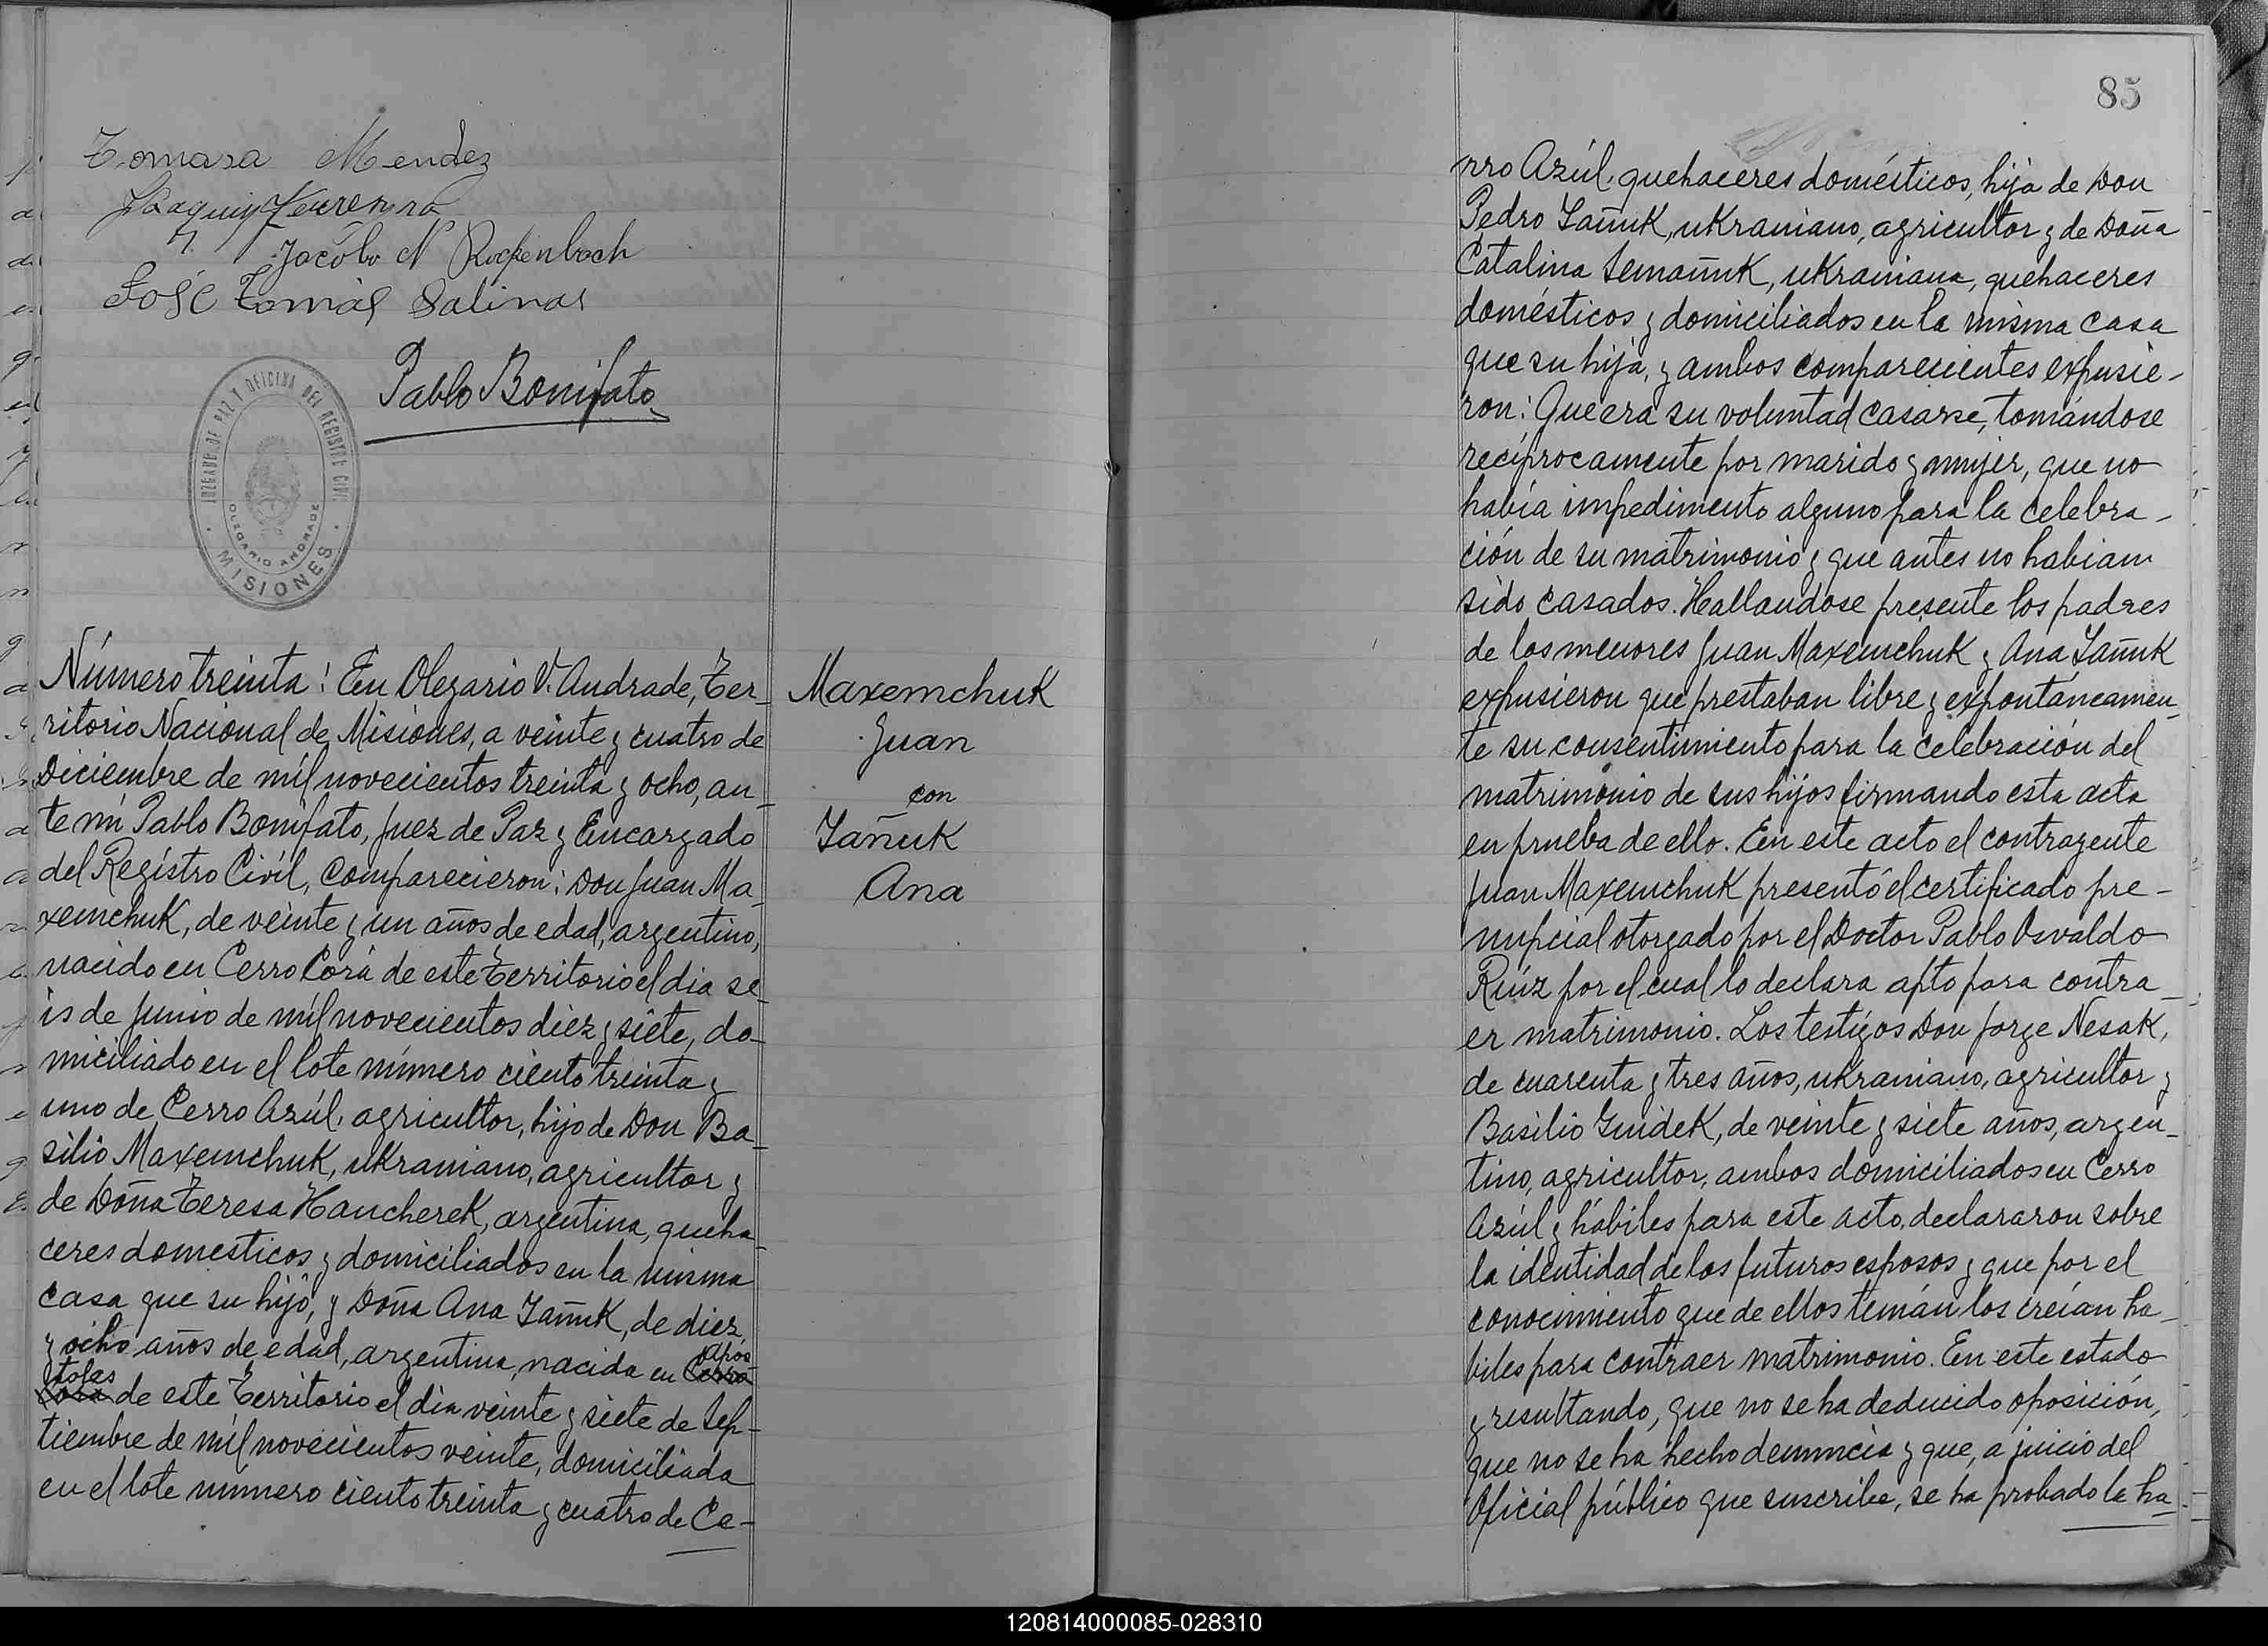 Tomasa Mendez
Joaquin
Jacobo N Rockenbach
José Tomás Salinas
Pablo Bonifato
JUZGADO DE PAZ Y OFICINA DEL REGISTRO CIVIL
OLEGARIO ANDRADE
MISIONES
Número treinta: En Olegario V. Andrade, Ter-
ritorio Nacional de Misiones, a veinte y cuatro de
Diciembre de mil novecientos treinta y ocho, an-
te mí Pablo Bonifato, Juez de Paz y Encargado
del Regístro Civíl, Comparecieron: Don Juan Ma-
xemchuk, de veinte y un años de edad, argentino,
nacido en Cerro Corá de este Territorio el dia se-
is de Junio de mil novecientos diez y siete, do-
miciliado en el lote número ciento treinta y
uno de Cerro Azúl, agricultor, hijo de Don Ba-
silio Maxemchuk, ukraniano, agricultor y
de Doña Teresa Hancherek, argentina, queha-
ceres domesticos y domiciliados en la misma
casa que su hijo, y Doña Ana Iañuk, de diez
y ocho años de edad, argentina, nacida en Cerro Apos
Cora toles de este Territorio el dia veinte y siete de Sep-
tiembre de mil novecientos veinte, domiciliada
en el lote número ciento treinta y cuatro de Ce-
Maxemchuk
Juan
con
Iañuk
Ana
85
rro Azúl, quehaceres domésticos, hija de Don
Pedro Iañuk, ukraniano, agricultor y de Doña
Catalina Semañuk, ukraniana, quehaceres
domésticos y domiciliados en la misma casa
que su hija, y ambos comparecientes expusie-
ron: Que era su voluntad casarse, tomándose
recíprocamente por marido y mujer, que no
había impedimento alguno para la celebra-
ción de su matrimonio y que antes no habian
sido casados. Hallandose presente los padres
de los menores Juan Maxemchuk y Ana Iañuk
expusieron que prestaban libre y expontáneamen-
te su consentimiento para la celebración del
matrimonio de sus hijos firmando esta acta
en prueba de ello. En este acto el contrayente
Juan Maxemchuk presentó el certificado pre-
nupcial otorgado por el Doctor Pablo Osvaldo
Ruíz por el cual lo declara apto para contra-
er matrimonio. Los testigos Don Jorge Nesak,
de cuarenta y tres años, ukraniano, agricultor y
Basilio Gnidek, de veinte y siete años, argen-
tino, agricultor, ambos domiciliados en Cerro
Azúl y hábiles para este acto, declararon sobre
la identidad de los futuros esposos y que por el
conocimiento que de ellos tenían los creían há-
biles para contraer matrimonio. En este estado
y resultando, que no se ha deducido oposición,
que no se ha hecho denuncia y que, a juicio del
Oficial público que suscribe, se ha probado la ha-
120814000085-028310